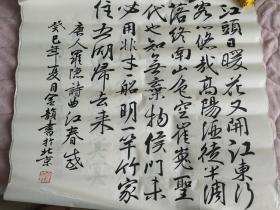 江頭日暖花又開江東行
客心悠哉高陽酒徒半凋
落終南山色空崔嵬聖
代也知無棄物侯門未
必用非才船明一竿竹家
住五湖歸去来
唐人羅隱詩曲江春感
癸巳年夏月金韻書於北京